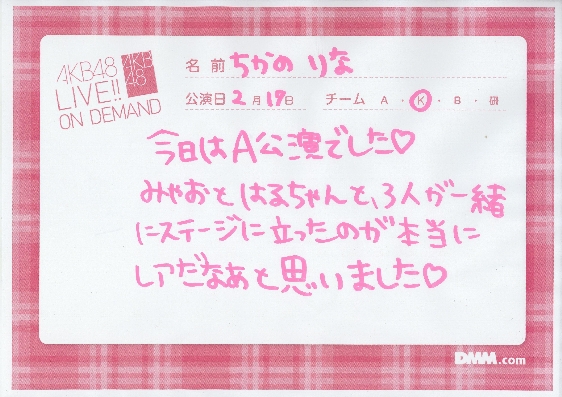 AKB48
LIVE!!
ON DEMAND
AKB
48
名前 ちかの りな
公演日 2月17日 チーム A・K・B・研
今日はA公演でした♡
みゃおとはるちゃんと、3人が一緒
にステージに立ったのが本当に
レアだなあと思いました♡
DMM.com